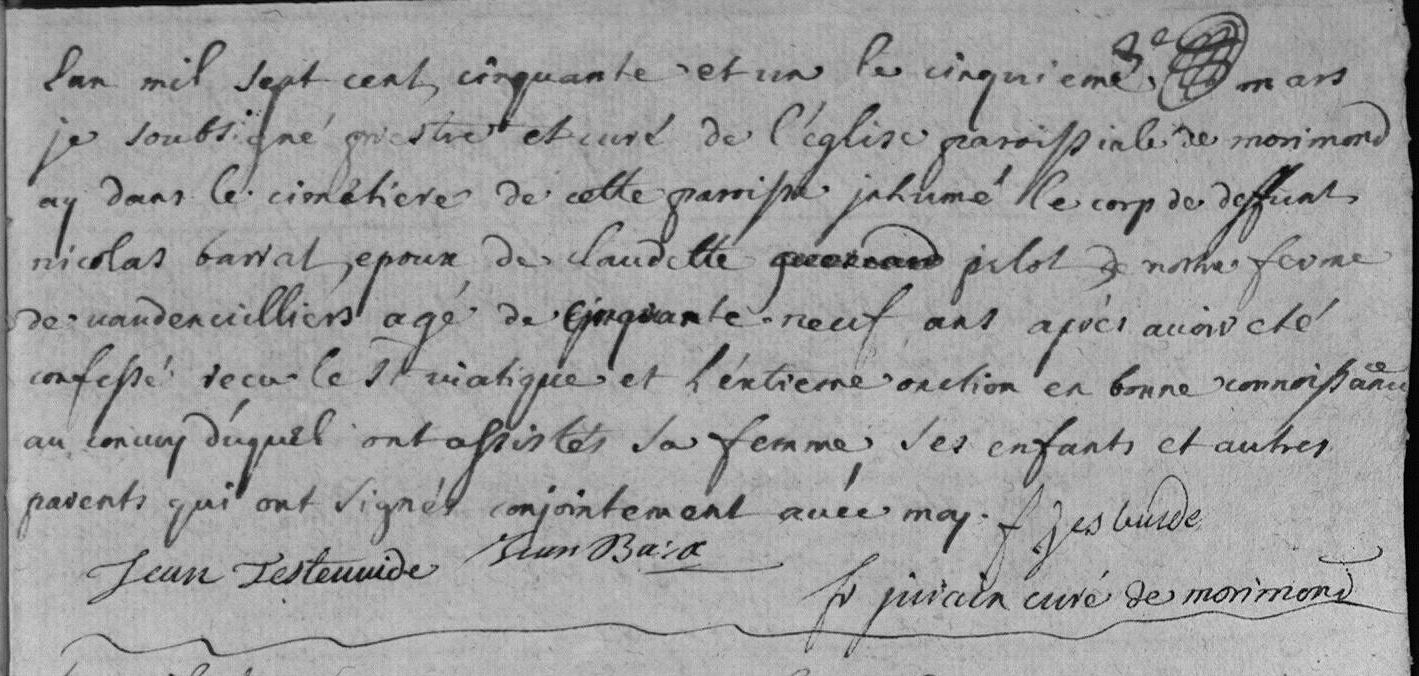 Lan mil sept cent cinquante et un le cinquieme mars
je soubsigné priestre et curé de l'église paroissiale de morimond
ay dans le cimétiere de cette paroisse jnhumé le corp de deffunt
nicolas barrat epoux de claudette de nostre ferme
de vaudenvilliers agé de cinquante neuf ans aprés avoir eté
confessé recu le St viatique et l'éxtreme onction en bonne connoissance
au convoy duquel ont assistés sa femme ses enfants et autres
parents qui ont signés conjointement avec moy. f
Jean Testevuide Jean
fr juvain curé de morimond